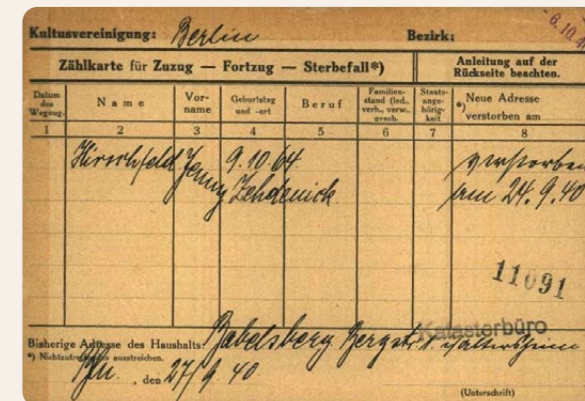 - 6. 10. 4
Kultusvereinigung: Berlin Bezirk:
Zählkarte für Zuzug — Fortzug — Sterbefall*)
Anleitung auf der
Rückseite beachten.
Datum des Wegzug.
Name
Vorname
Geburtstag und -ort
Beruf
Familienstand (led., verh., verw., gesch.
Staatsangehörigkeit
*) Neue Adresse
verstorben am
1 2 3 4 5 6 7 8
Hirschfeld Jenny 9.10.64 verstorben
Zehdenick am 24.9.40
11091
Katasterbüro
Bisherige Adresse des Haushalts: Babelsberg Bergstr. 1. Altersheim
*) Nichtzutreffendes ausstreichen.
Bln. , den 27/9. 40
(Unterschrift)